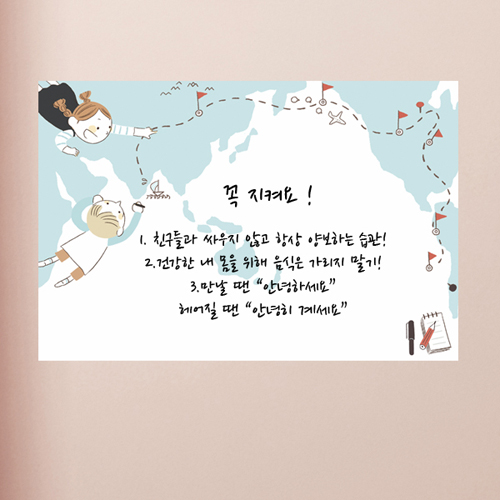 꼭 지켜요 !
1. 친구들과 싸우지 않고 항상 양보하는 습관!
2.건강한 내 몸을 위해 음식은 가리지 말기!
3.만날 땐 “안녕하세요”
헤어질 땐 “안녕히 계세요”